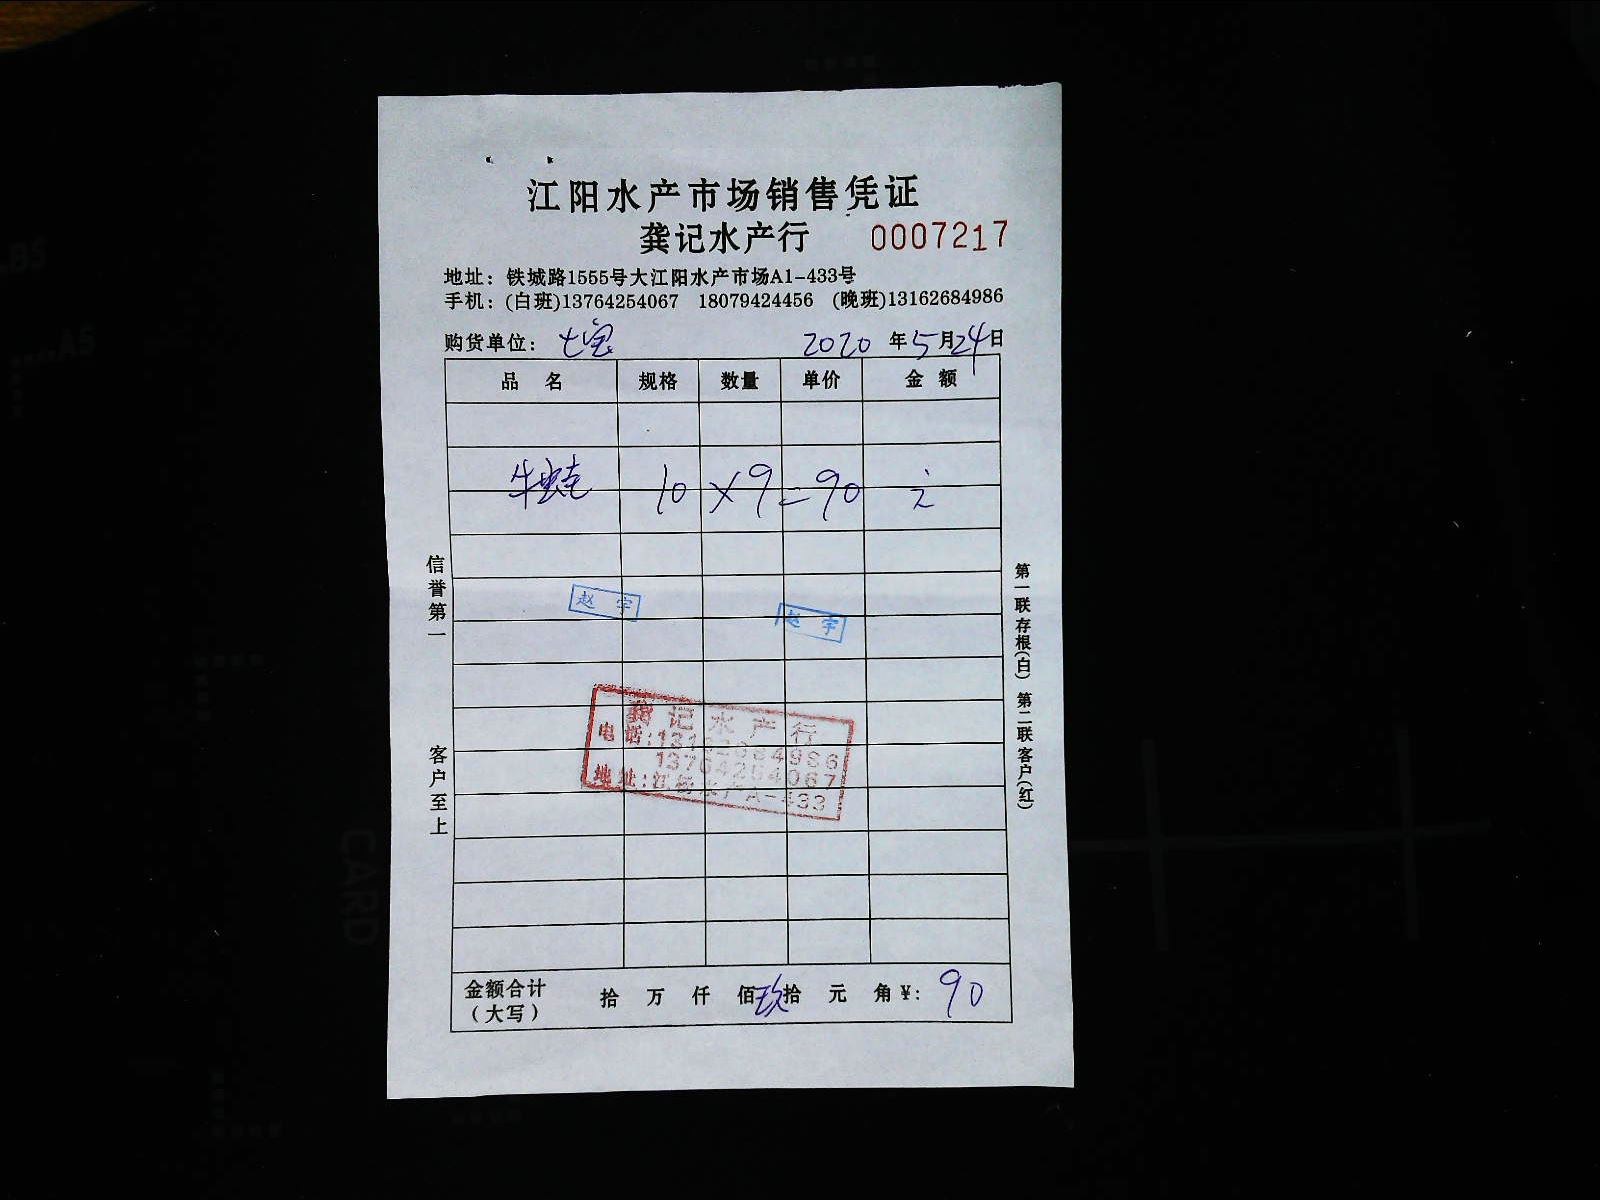 江阳水产市场销售凭证
龚记水产行 0007217
地址：铁城路1555号大江阳水产市场A1-433号
手机：(白班)13764254067 18079424456 (晚班)13162684986
购货单位：七宝 2020 年 5 月 24 日
品 名 规格 数量 单价 金 额
牛蛙 10 × 9 = 90 元
赵 宇
赵 宇
龚记水产行
电话:13162684986
13764254067
地址:江杨水产A-433
金额合计（大写） 拾 万 仟 佰 玖拾 元 角 ¥: 90
信誉第一 客户至上
第一联存根(白) 第二联客户(红)